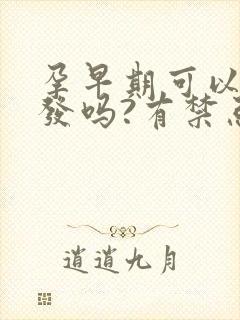 孕早期可以
發吗?有禁忌
逍遥九月